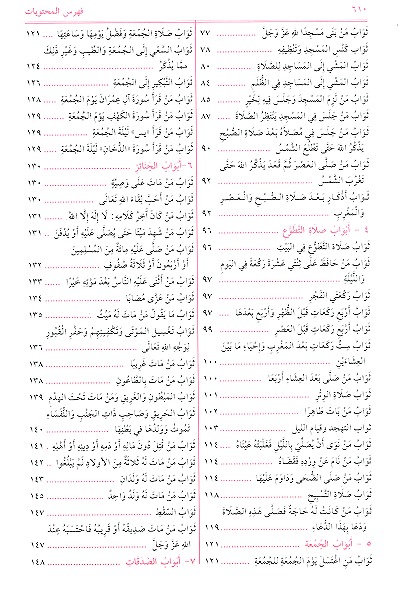 ٦١٠
فهرس المحتويات
ثَوَابُ مَنْ بَنَى مَسْجِدًا لِلهِ عَزَّ وَجَلَّ ٧٧
ثَوَابُ كَنْسِ الْمَسْجِدِ وَتَنْظِيفِهِ ٧٨
ثَوَابُ الْمَشْيِ إِلَى الْمَسَاجِدِ لِلصَّلَاةِ ٨٠
ثَوَابُ الْمَشْيِ إِلَى الْمَسَاجِدِ فِي الظُّلَمِ ٨٤
ثَوَابُ مَنْ لَزِمَ الْمَسْجِدَ وَجَلَسَ فِيهِ بِخَيْرٍ ٨٥
ثَوَابُ مَنْ جَلَسَ فِي الْمَسْجِدِ يَنْتَظِرُ الصَّلَاةَ ٨٧
ثَوَابُ مَنْ جَلَسَ فِي مُصَلَّاهُ بَعْدَ صَلَاةِ الصُّبْحِ
يَذْكُرُ اللهَ حَتَّى تَطْلُعَ الشَّمْسُ ٩٠
ثَوَابُ مَنْ صَلَّى الْعَصْرَ ثُمَّ قَعَدَ يَذْكُرُ اللهَ حَتَّى
تَغْرُبَ الشَّمْسُ ٩٢
ثَوَابُ أَذْكَارٍ بَعْدَ صَلَاةِ الصُّبْحِ وَالْعَصْرِ
وَالْمَغْرِبِ ٩٣
٤ - أَبْوَابُ صَلَاةِ التَّطَوُّعِ ٩٦
ثَوَابُ صَلَاةِ التَّطَوُّعِ فِي الْبَيْتِ ٩٦
ثَوَابُ مَنْ حَافَظَ عَلَى ثِنْتَيْ عَشْرَةَ رَكْعَةً فِي الْيَوْمِ
وَاللَّيْلَةِ ٩٧
ثَوَابُ رَكْعَتَيِ الْفَجْرِ ٩٧
ثَوَابُ أَرْبَعِ رَكَعَاتٍ قَبْلَ الظُّهْرِ وَأَرْبَعٍ بَعْدَهَا ٩٧
ثَوَابُ أَرْبَعِ رَكَعَاتٍ قَبْلَ الْعَصْرِ ٩٩
ثَوَابُ سِتِّ رَكَعَاتٍ بَعْدَ الْمَغْرِبِ وَإِحْيَاءِ مَا بَيْنَ
الْعِشَاءَيْنِ ١٠٠
ثَوَابُ مَنْ صَلَّى بَعْدَ الْعِشَاءِ أَرْبَعًا ١٠٠
ثَوَابُ صَلَاةِ الْوِتْرِ ١٠١
ثَوَابُ مَنْ بَاتَ طَاهِرًا ١٠٢
ثواب التهجد وقيام الليل ١٠٣
ثَوَابُ مَنْ نَوَى أَنْ يُصَلِّيَ بِاللَّيْلِ فَغَلَبَتْهُ عَيْنَاهُ ١١٤
ثَوَابُ مَنْ نَامَ عَنْ وِرْدِهِ فَقَضَاهُ ١١٤
ثَوَابُ مَنْ صَلَّى الضُّحَى وَدَاوَمَ عَلَيْهَا ١١٤
ثَوَابُ صَلَاةِ التَّسْبِيحِ ١١٨
ثَوَابُ مَنْ كَانَتْ لَهُ حَاجَةٌ فَصَلَّى هَذِهِ الصَّلَاةَ
وَدَعَا بِهَذَا الدُّعَاءِ ١١٩
٥ - أَبْوَابُ الْجُمُعَةِ ١٢١
ثَوَابُ مَنِ اغْتَسَلَ يَوْمَ الْجُمُعَةِ لِلْجُمُعَةِ ١٢١
ثَوَابُ صَلَاةِ الْجُمُعَةِ وَفَضْلُ يَوْمِهَا وَسَاعَتِهَا ١٢١
ثَوَابُ السَّعْيِ إِلَى الْجُمُعَةِ وَالطِّيبِ وَغَيْرِ ذَلِكَ
مِمَّا يُذْكَرُ ١٢٤
ثَوَابُ التَّبْكِيرِ إِلَى الْجُمُعَةِ ١٢٨
ثَوَابُ مَنْ قَرَأَ سُورَةَ آلِ عِمْرَانَ يَوْمَ الْجُمُعَةِ ١٢٨
ثَوَابُ مَنْ قَرَأَ سُورَةَ الْكَهْفِ يَوْمَ الْجُمُعَةِ ١٢٩
ثَوَابُ مَنْ قَرَأَ سُورَةَ «يس» لَيْلَةَ الْجُمُعَةِ ١٢٩
ثَوَابُ مَنْ قَرَأَ سُورَةَ «الدُّخَانِ» لَيْلَةَ الْجُمُعَةِ ١٢٩
٦- أَبْوَابُ الْجَنَائِزِ ١٣٠
ثَوَابُ مَنْ مَاتَ عَلَى وَصِيَّةٍ ١٣٠
ثَوَابُ مَنْ أَحَبَّ لِقَاءَ اللهِ تَعَالَى ١٣٠
ثَوَابُ مَنْ كَانَ آخِرُ كَلَامِهِ: لَا إِلَهَ إِلَّا اللهُ ١٣١
ثَوَابُ مَنْ شَهِدَ مَيْتًا حَتَّى يُصَلَّى عَلَيْهِ أَوْ يُدْفَنَ ١٣١
ثَوَابُ مَنْ صَلَّى عَلَيْهِ مِائَةٌ مِنَ الْمُسْلِمِينَ
أَوْ أَرْبَعُونَ أَوْ ثَلَاثَةُ صُفُوفٍ ١٣٢
ثَوَابُ مَنْ أَثْنَى عَلَيْهِ النَّاسُ بَعْدَ مَوْتِهِ خَيْرًا ١٣٣
ثَوَابُ مَنْ عَزَّى مُصَابًا ١٣٤
ثَوَابُ مَا يَقُولُ مَنْ مَاتَ لَهُ مَيِّتٌ ١٣٥
ثَوَابُ تَغْسِيلِ الْمَوْتَى وَتَكْفِينِهِمْ وَحَفْرِ الْقُبُورِ
لِوَجْهِ اللهِ تَعَالَى ١٣٦
ثَوَابُ مَنْ مَاتَ غَرِيبًا ١٣٨
ثَوَابُ مَنْ مَاتَ بِالطَّاعُونِ ١٣٨
ثَوَابُ الْمَبْطُونِ وَالْغَرِيقِ وَمَنْ مَاتَ تَحْتَ الْهَدْمِ ١٣٩
ثَوَابُ الْحَرِيقِ وَصَاحِبِ ذَاتِ الْجَنْبِ وَالنُّفَسَاءِ
تَمُوتُ وَوَلَدُهَا فِي بَطْنِهَا ١٤٠
ثَوَابُ مَنْ قُتِلَ دُونَ مَالِهِ أَوْ دَمِهِ أَوْ دِينِهِ أَوْ أَهْلِهِ ١٤١
ثَوَابُ مَنْ مَاتَ لَهُ ثَلَاثَةٌ مِنَ الْأَوْلَادِ لَمْ يَبْلُغُوا ١٤٢
ثَوَابُ مَنْ مَاتَ لَهُ وَلَدَانِ ١٤٣
ثَوَابُ مَنْ مَاتَ لَهُ وَلَدٌ وَاحِدٌ ١٤٥
ثَوَابُ السَّقْطِ ١٤٧
ثَوَابُ مَنْ مَاتَ صَدِيقُهُ أَوْ قَرِيبُهُ فَاحْتَسَبَهُ عِنْدَ
اللهِ عَزَّ وَجَلَّ ١٤٧
٧- أَبْوَابُ الصَّدَقَاتِ ١٤٨